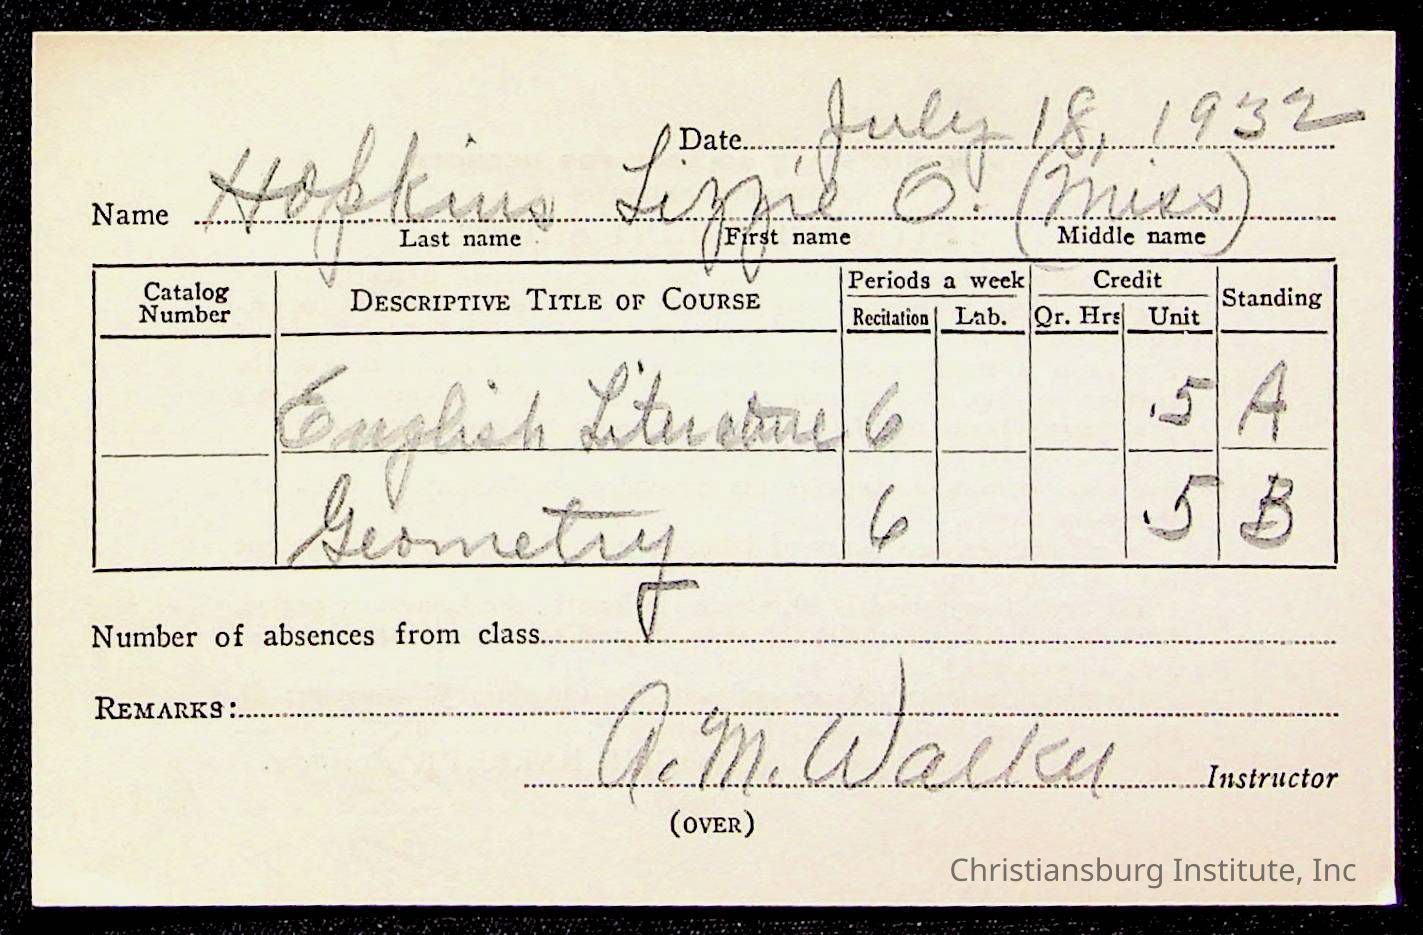 Date July 18, 1932
Name Hopkins Lizzie O. (Miss)
Last name First name Middle name
Catalog Number DESCRIPTIVE TITLE OF COURSE Periods a week Credit Standing
Recitation Lab. Qr. Hrs Unit
English Literature 6 .5 A
Geometry 6 .5 B
Number of absences from class
REMARKS:
A. M. Walker Instructor
(OVER)
Christiansburg Institute, Inc